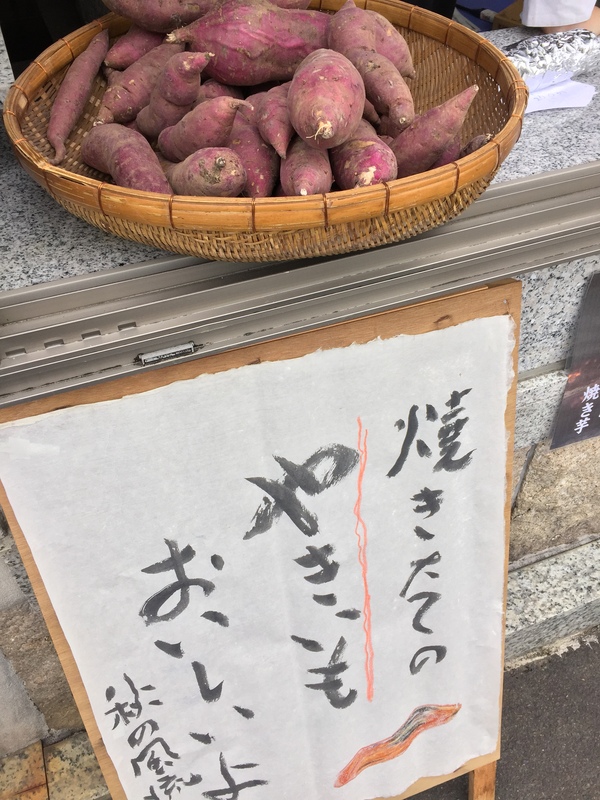 焼きたての
やきいも
おいしいよ
秋の風流
焼き芋